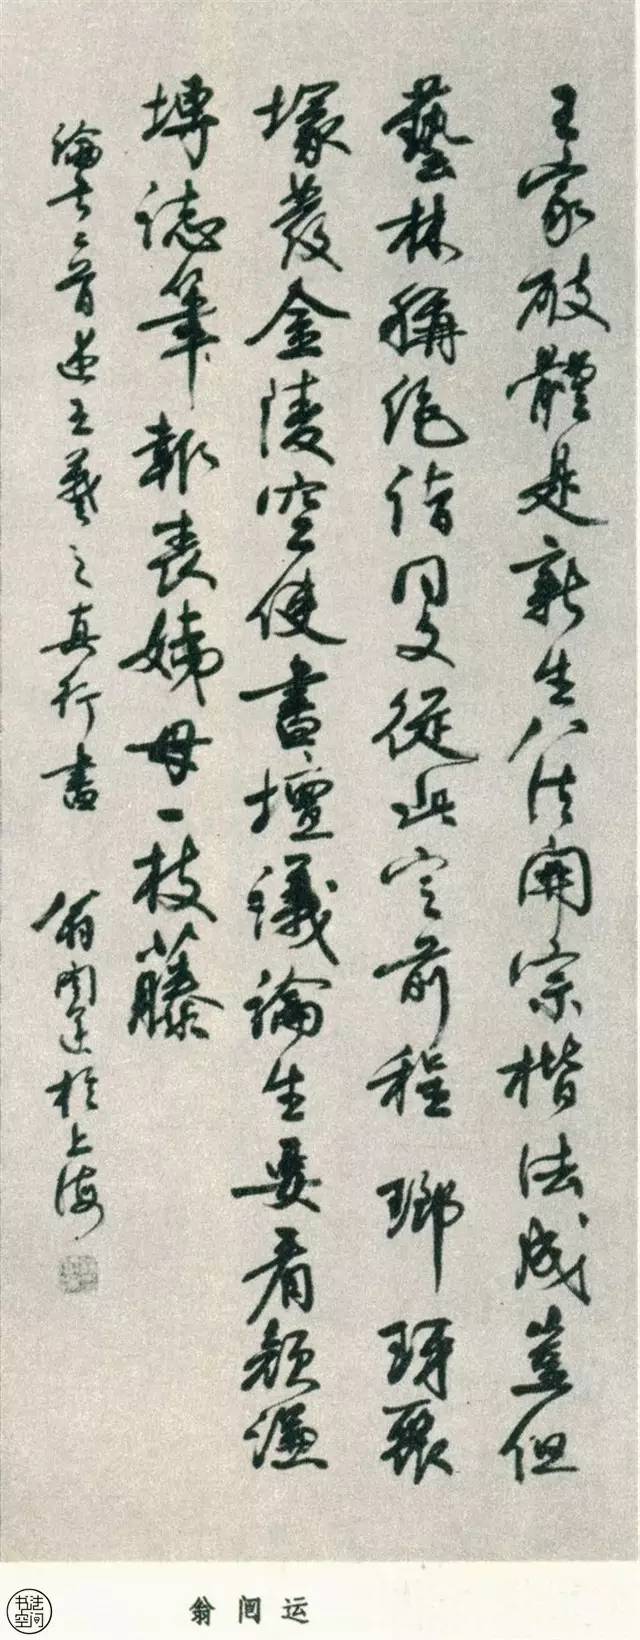 王家破體是新生八法開宗楷法成豈但
藝林稱絕詣同文從此定前程 瑯琊聚
塚發金陵空使書壇議論生要看顏謙
塼誌筆報喪姨母一枝藤
論書二首述王羲之真行書 翁闓運於上海
书法空间
翁闿运